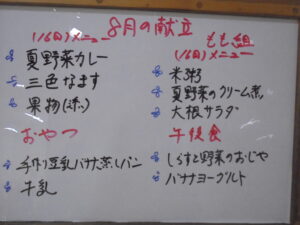 8月の献立
(16日)メニュー
夏野菜カレー
三色なます
果物(凍)
おやつ
手作り豆乳バナナ蒸しパン
牛乳
もも組
(16日)メニュー
米粥
夏野菜のクリーム煮
大根サラダ
午後食
しらすと野菜のおじや
バナナヨーグルト